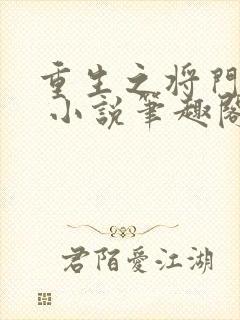 重生之将門
小説筆趣閣
君陌愛江湖